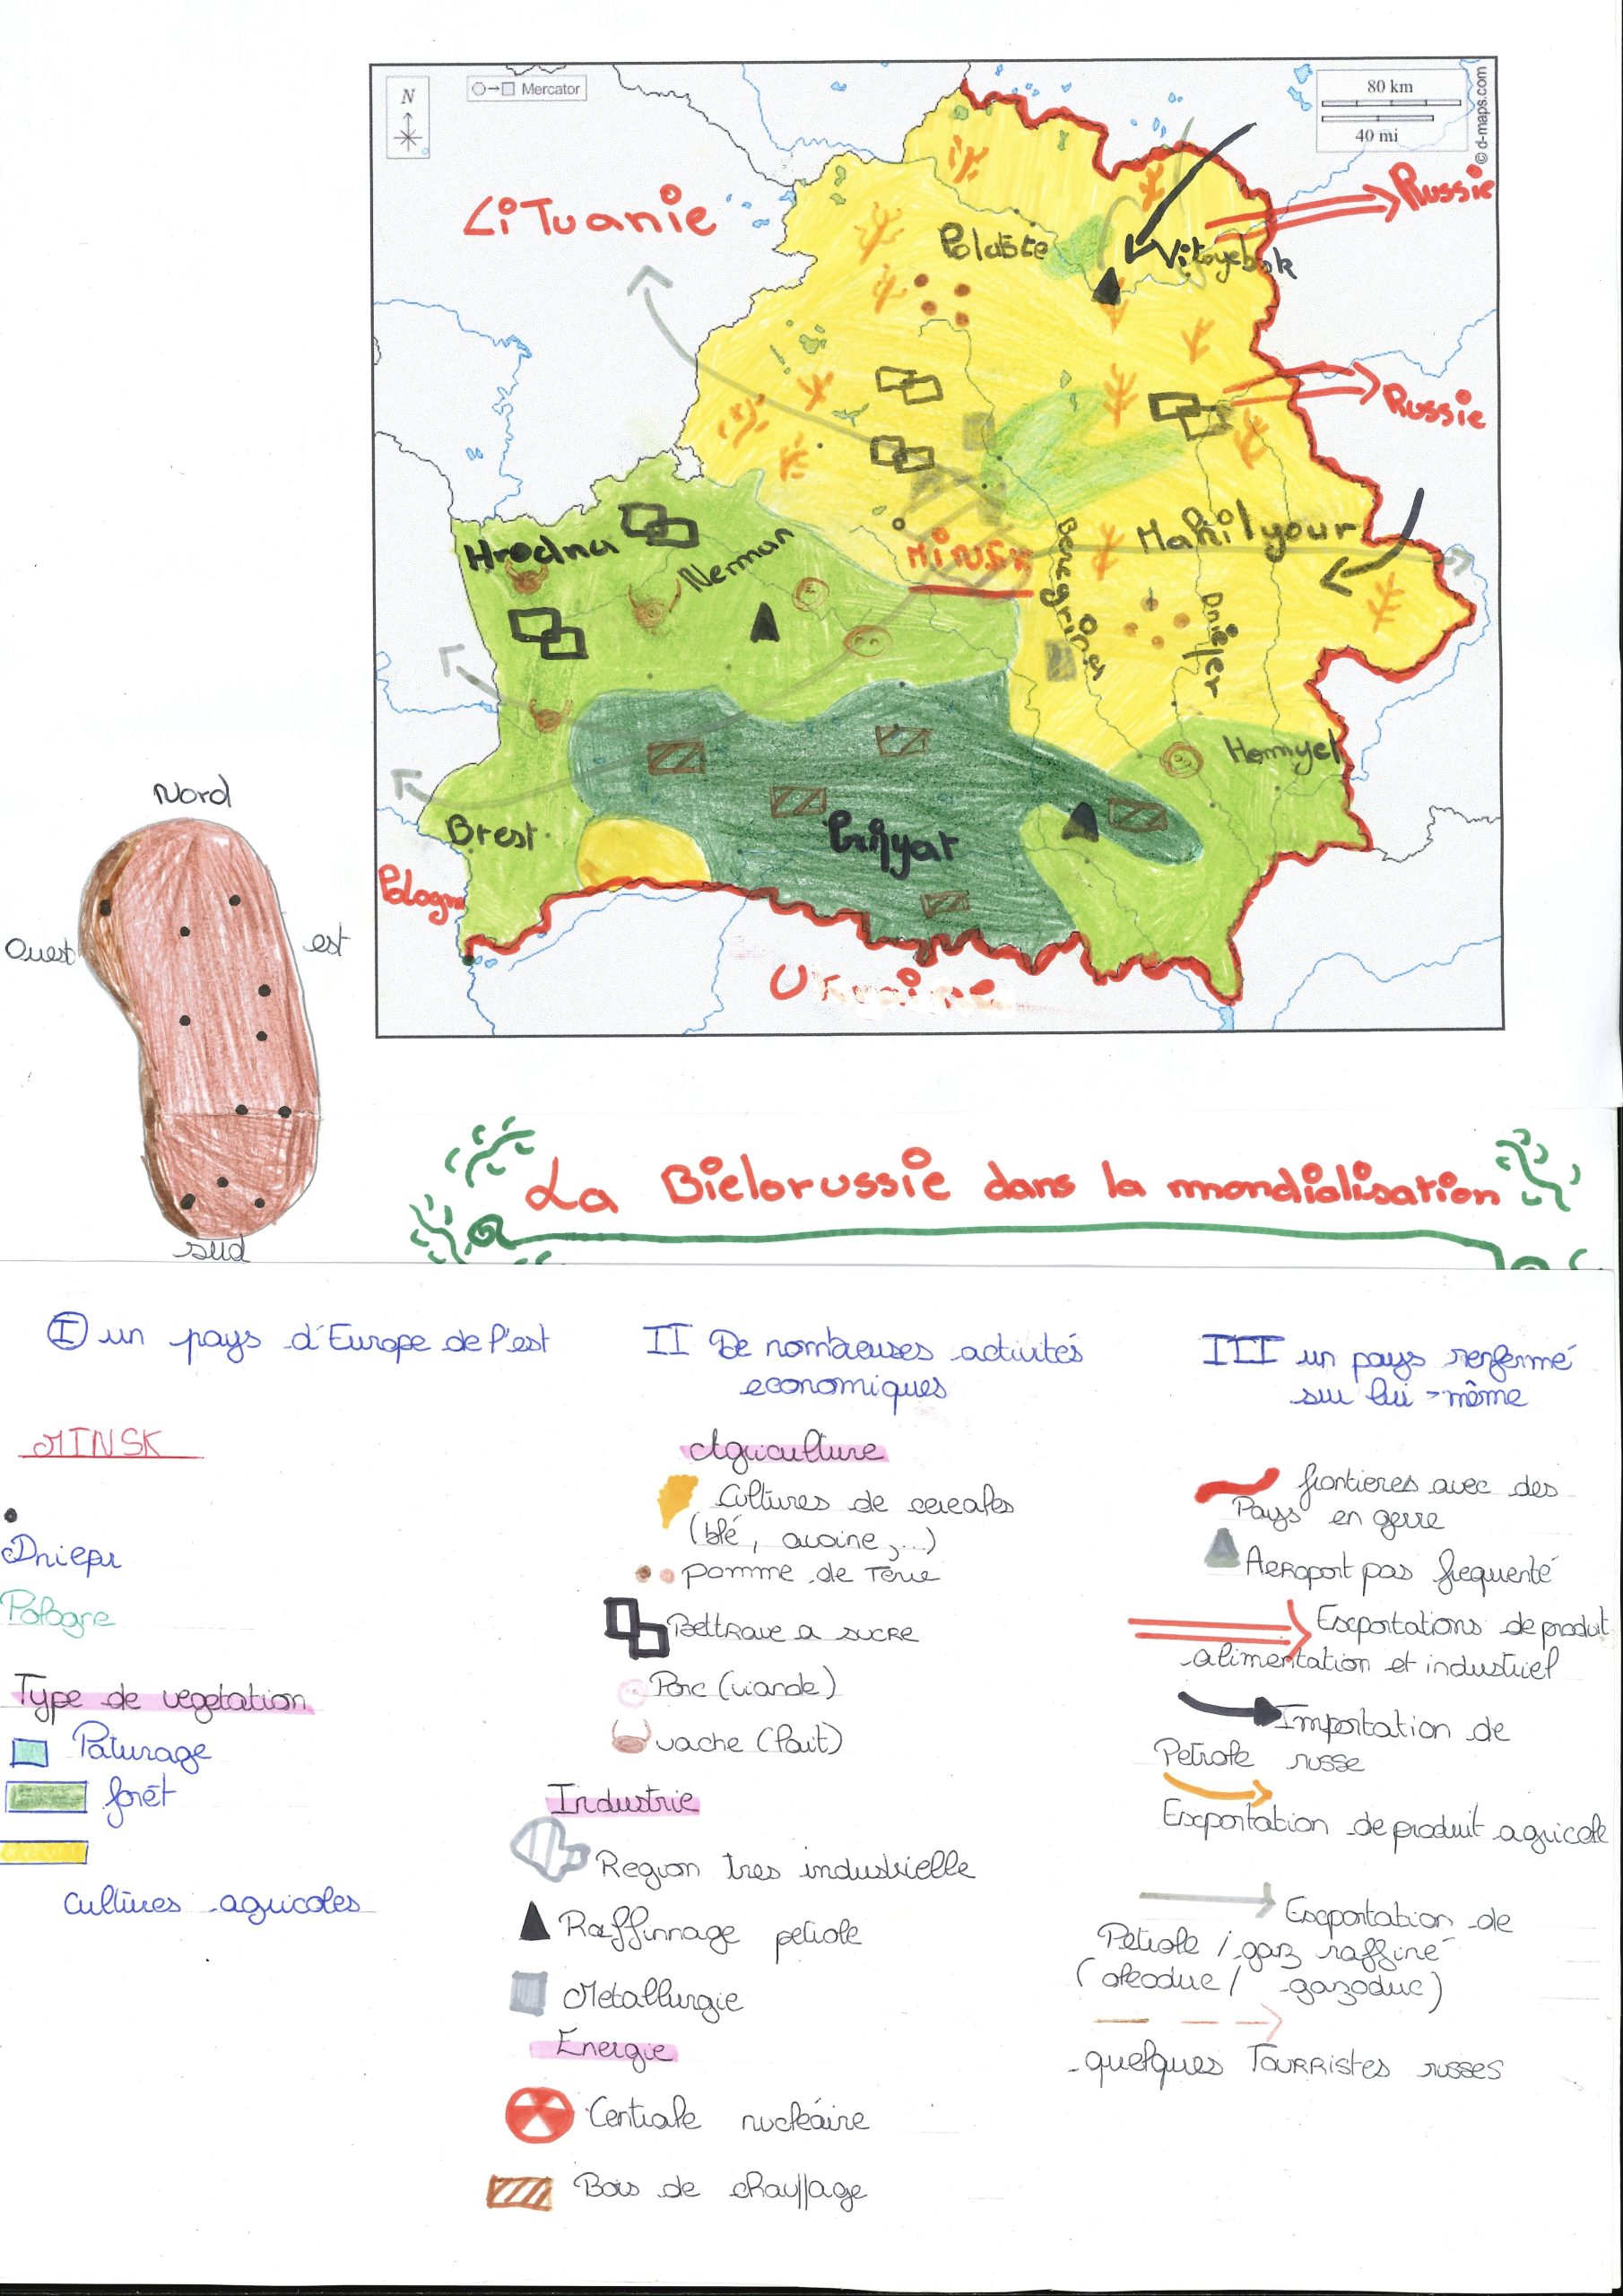 N
Mercator
80 km
40 mi
© d-maps.com
LiTuanie
Russie
Polatste
Vitsyebsk
Russie
Hrodna
Neman
MiNSK
Mahilyour
Berezina
Dniepr
Homyel
Brest
Pripyat
Pologne
Ukraine
Nord
Ouest
est
sud
La Bielorussie dans la mondialisation
I un pays d'Europe de l'est
MINSK
Dniepr
Pologne
Type de vegetation
Paturage
forêt
Cultures agricoles
II De nombreuses activités
economiques
Agriculture
Cultures de cereales
(blé, avoine,...)
pomme de Terre
BettRave a sucRe
Porc (viande)
vache (lait)
Industrie
Region tres industrielle
Raffinnage petrole
Metallurgie
Energie
Centrale nucléaire
Bois de chauffage
III un pays renfermé
sur lui-même
frontieres avec des
Pays en gerre
Aeroport pas frequenté
Exportations de produit
alimentation et industriel
Importation de
Petrole russe
Exportation de produit agricole
Exportation de
Petrole / gaz raffiné
(oleoduc / gazoduc)
quelques TouRRistes russes